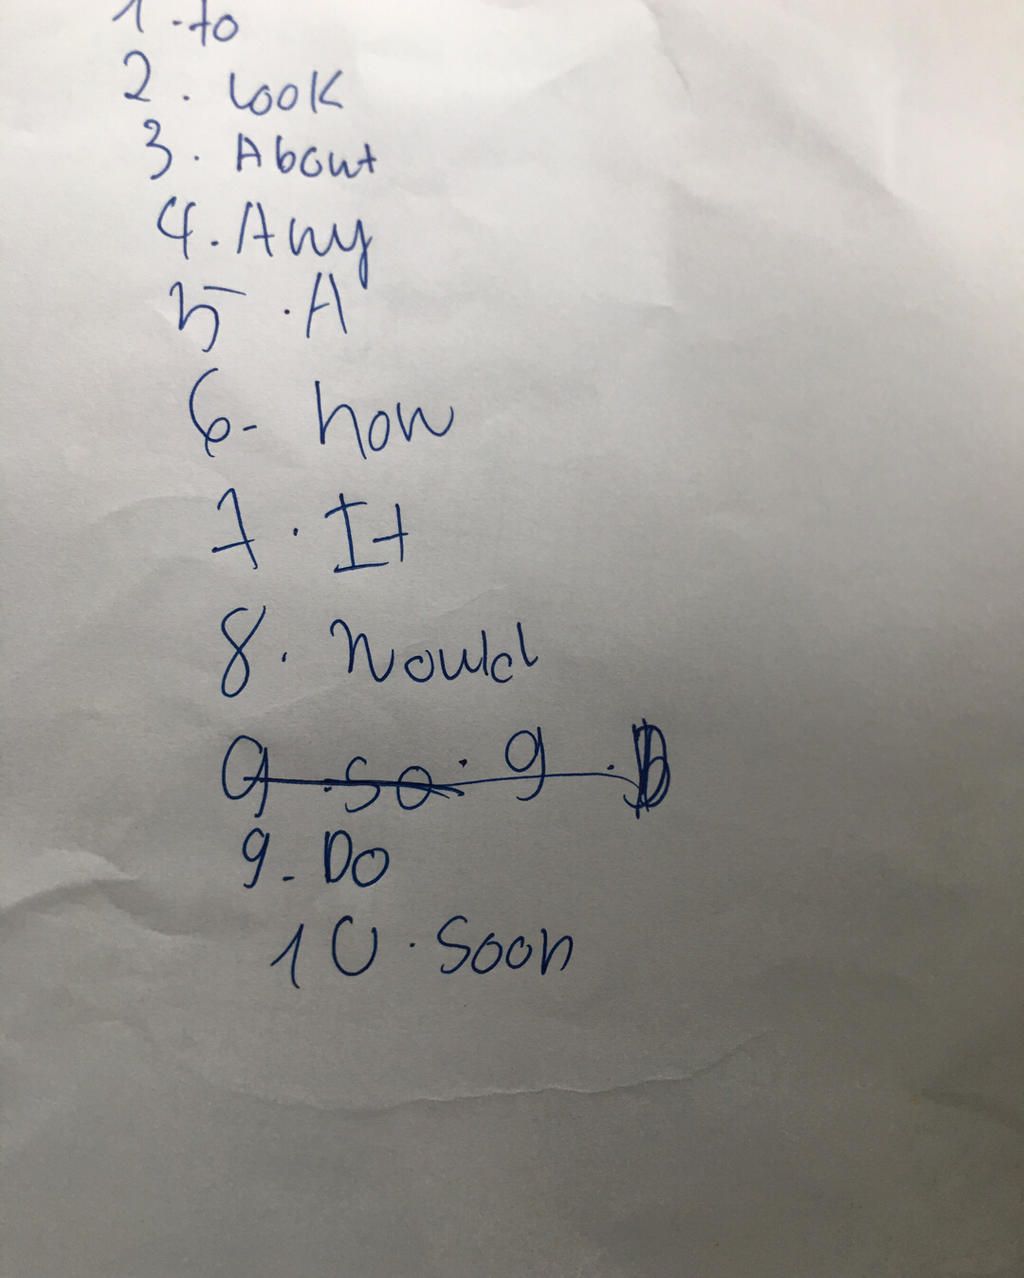 1. to
2. Look
3. About
4. Any
5. A
6- how
7. It
8. Would
9. So. 9.
9- Do
10. Soon